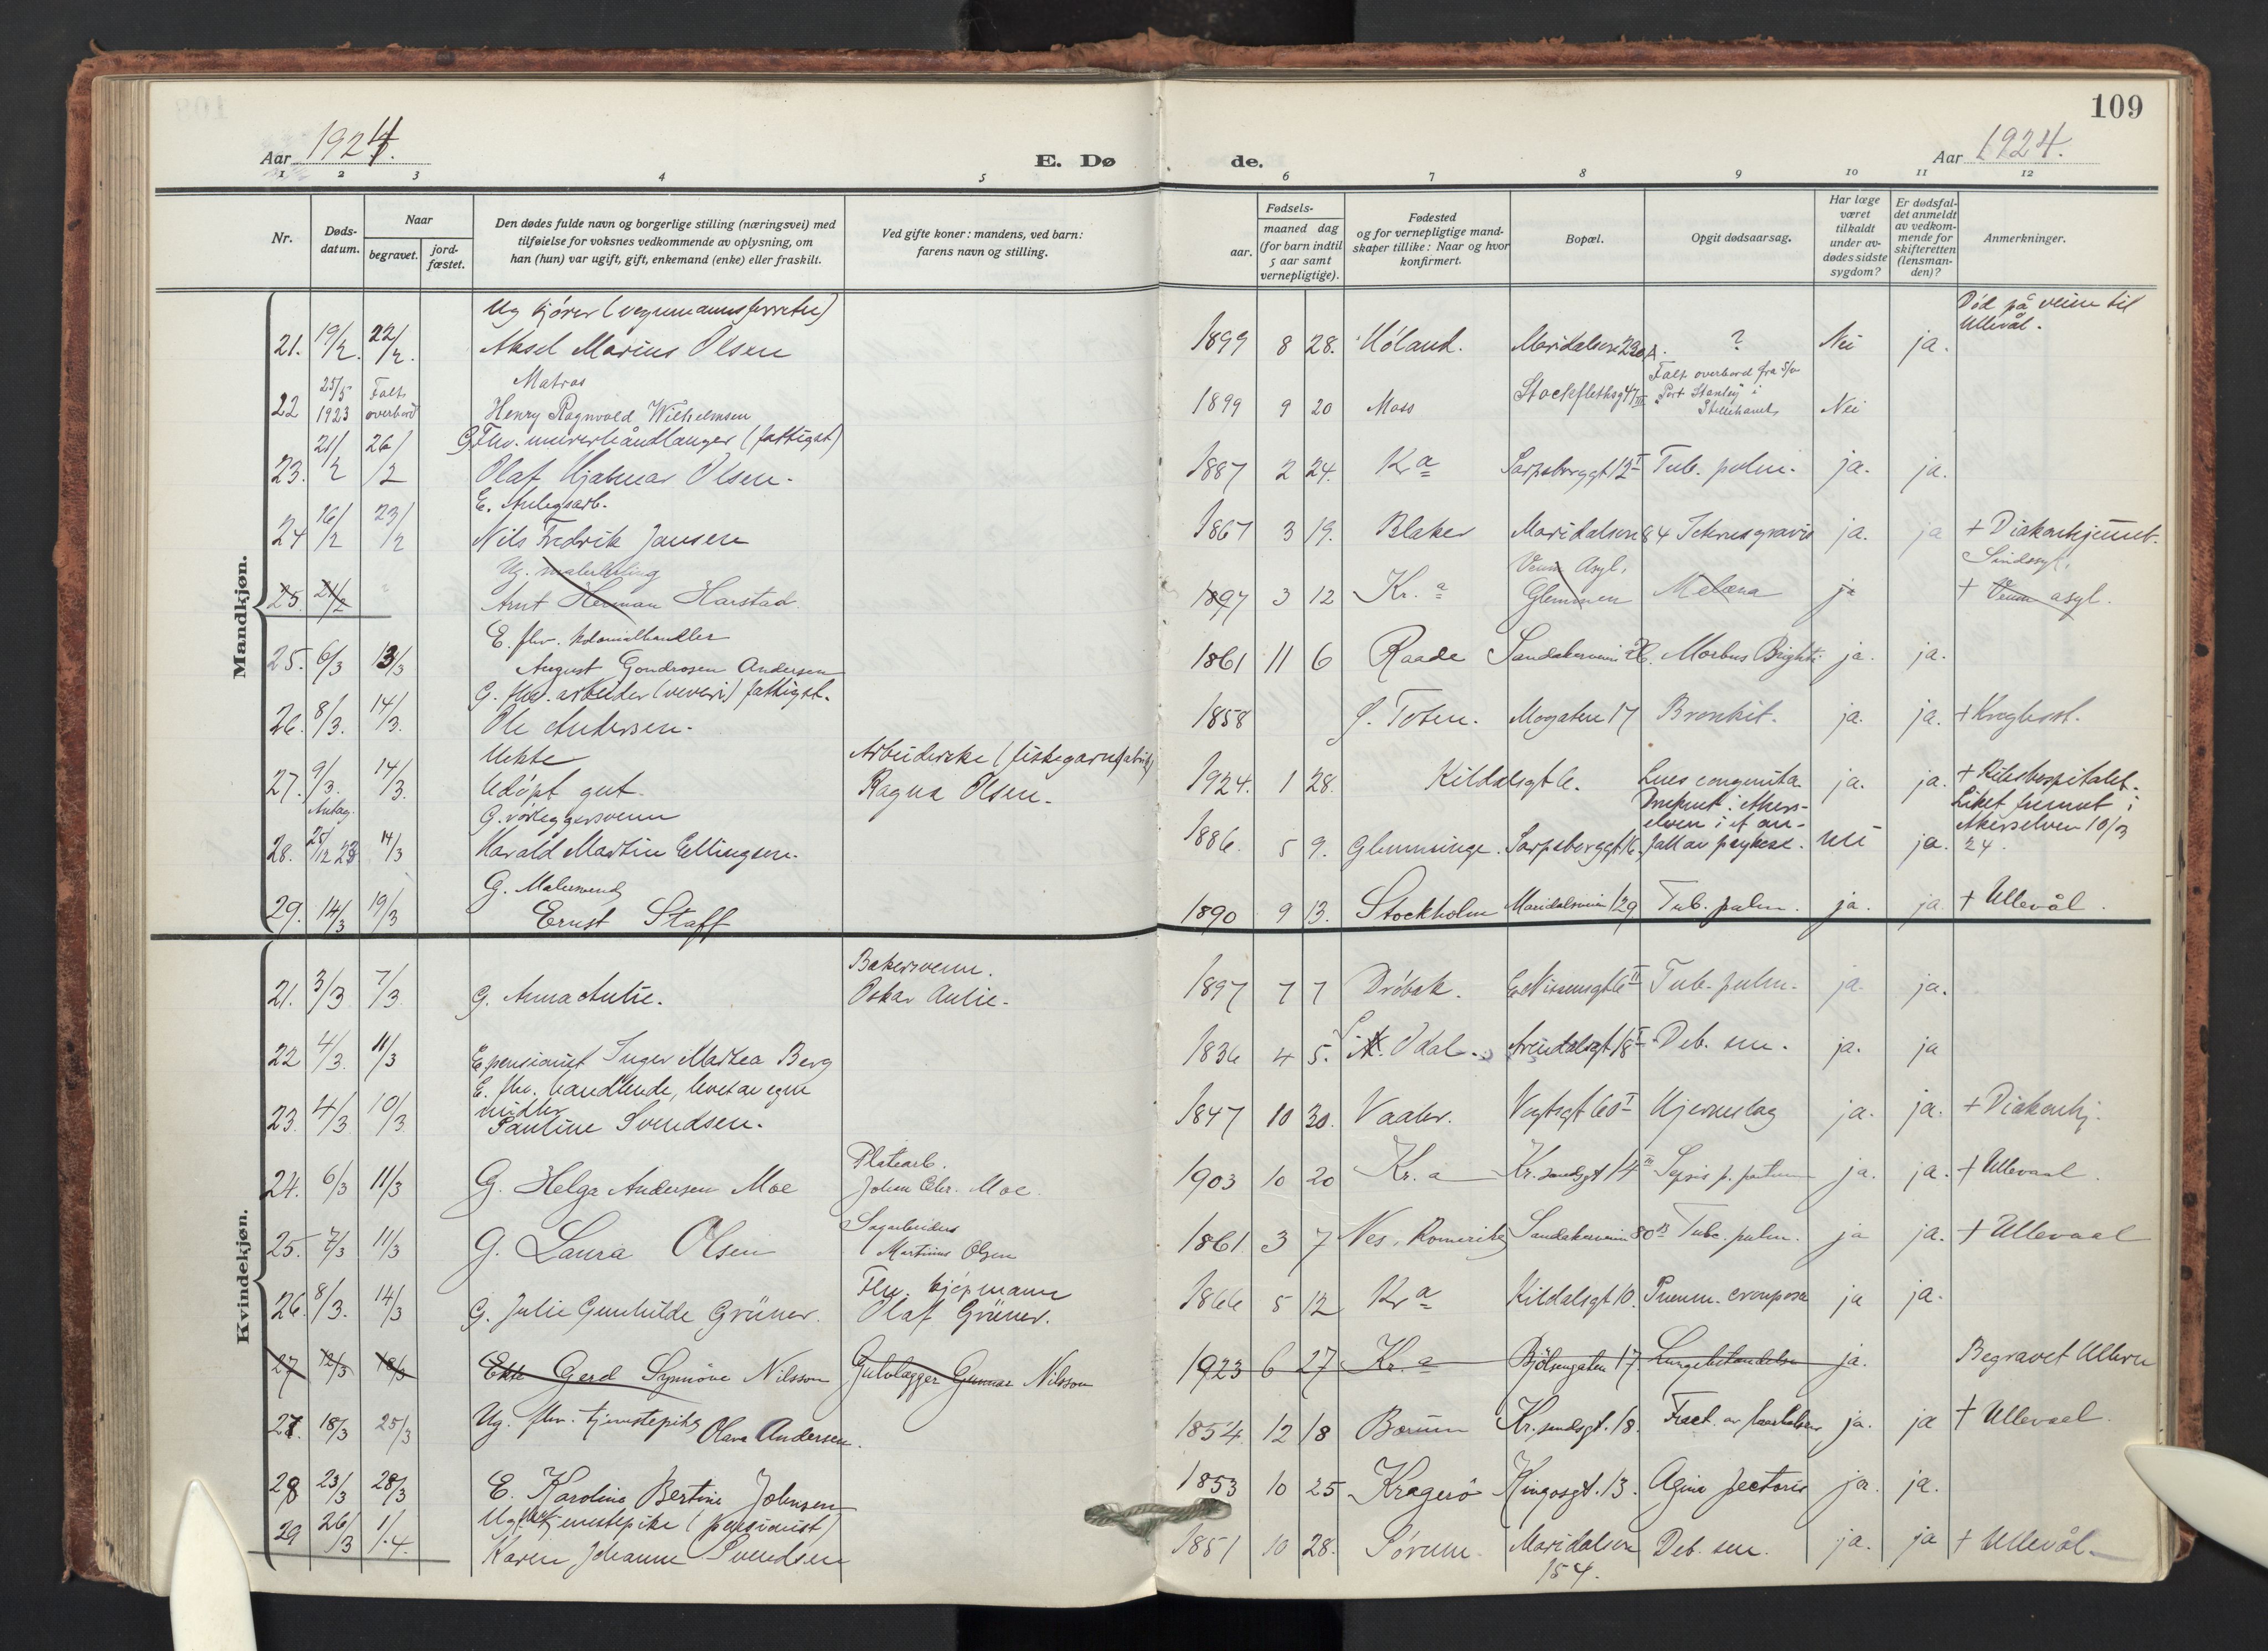 109
Aar 1924.
E. Dø
de.
Aar 1924.
1 2 3 4 5 6 7 8 9 10 11 12
Nr.
Døds-
datum.
Naar
begravet.
jord-
fæstet.
Den dødes fulde navn og borgerlige stilling (næringsvei) med
tilføielse for voksnes vedkommende av oplysning, om
han (hun) var ugift, gift, enkemand (enke) eller fraskilt.
Ved gifte koner: mandens, ved barn:
farens navn og stilling.
Fødsels-
aar.
maaned dag
(for barn indtil
5 aar samt
vernepligtige).
Fødested
og for vernepligtige mand-
skaper tillike: Naar og hvor
konfirmert.
Bopæl.
Opgit dødsaarsag.
Har læge
været
tilkaldt
under av-
dødes sidste
sygdom?
Er dødsfal-
det anmeldt
av vedkom-
mende for
skifteretten
(lensman-
den)?
Anmerkninger.
Mandkjøn.
Ug kjører (vognmannsforretn)
Død på veien til
Ullevål.
21. 19/2. 22/2. Aksel Marius Olsen 1899 8 28. Høland. Maridalsvn 230A. ? Nei ja.
25/5 Falt Matros Falt overbord fra S/s
22 1923 overbord Henry Ragnvald Wilhelmsen 1899 9 20 Moss Stockflethsgt 47 III "Port Stanley" i Nei
Stillehavet
G. Fhv. murerhåndlanger (fattigst)
23. 21/2 26/2 Olaf Hjalmar Olsen. 1887 2 24. Kra Sarpsborggt 12 I Tub. pulm. ja. ja.
E. Anlegsarb.
24 16/2 23/2 Nils Fredrik Jansen 1867 3 19. Blaker Maridalsvn 84 Icterus gravis ja. ja + Diakonhjemmet.
Ug. malerlærling Veum Asyl, Sindssyk,
25. 21/2 " Arnt Herman Harstad. 1897 3 12 Kr.a Glemmen Melæna ja + Veum asyl.
E. fhv. kolonialhandler
25. 6/3 13/3 August Gondrosen Andersen 1861 11 6 Raade Sandakerveien Morbus Brighti ja. ja.
G. fhv. arbeider (veveri) fattigst.
26. 8/3. 14/3. Ole Andersen. 1858 Ø. Toten. Mogaten 17 Bronkit. ja. ja. + Krohgst.
Uekte Arbeiderske (fiskegarnfabrik)
27. 9/3. 14/3. Udøpt gut. Ragna Olsen. 1924. 1 28. Kildalsgt 6. Lues congenita ja. ja. + Rikshospitalet.
Antag. G. rørleggersvenn Druknet i Akers- Liket funnet i
elven i et an- Akerselven 10/3
28. 25/12 23 14/3 Harald Martin Ellingsen. 1886. 5 9. Glemminge. Sarpsborggt 16. fall av psykose. nei ja. 24.
G. Malersvend
29. 14/3 19/3 Ernst Staff 1890 9 13. Stockholm Maridalsveien 129 Tub. pulm. ja. ja. + Ullevål.
Kvindekjøn.
Bakersvenn.
21. 3/3 7/3 G. Anna Aulie. Oskar Aulie. 1897 7 7 Drøbak. E. Nissensgt 6 II Tub. pulm. ja. ja.
22 4/3. 11/3 E pensionist Inger Mathea Berg 1836 4 5. Odal. Arendalsgt 18 I Deb. sen. ja. ja
E. fhv. handlende, levet av egne
midler
23. 4/3 10/3 Pauline Svendsen. 1847 10 30. Vaaler. Vogtsgt 60 I Hjerneslag ja. ja. + Diakonhj.
Platearb.
24. 6/3 11/3 G. Helga Andersen Moe Johan Chr. Moe. 1903 10 20 Kr.a Kr.sandsgt 14 III Sepsis p. partum ja. ja. + Ullevaal.
Sagarbeider
25. 7/3 11/3 G. Laura Olsen Martinius Olsen 1861 3 7 Nes, Romerike Sandakerveien 80 B Tubc. pulm. ja ja. + Ullevaal
Fhv. kjøpmann
26. 8/3. 14/3 G. Julie Gunhilde Grüner. Olaf Grüner. 1866 5 12 Kra Kildalsgt 10. Pneum. crouposa ja ja.
27 12/3 18/3 Ekte Gerd Synnöve Nilsson Gulvlægger Gunnar Nilsson 1923 6 27 Kr.a Bjölsengaten 17. Lungebetændelse ja. Begravet Ullern
27. 18/3 25/3 Ug. fhv. tjenestepike Olava Andersen. 1854. 12 18 Bærum Kr.sandsgt. 18. Fract. av laarhalsen ja. ja + Ullevaal.
28 23/3 28/3 E. Karoline Bertine Johnsen 1853 10 25 Kragerö Kingosgt. 13. Agina pectoris ja. ja.
Ug. fhv. tjenestepike (pensionist)
29 26/3 1/4. Karen Johanne Svendsen 1851 10 28. Sørum. Maridalsvn Deb. sen. ja. ja + Ullevål.
154.